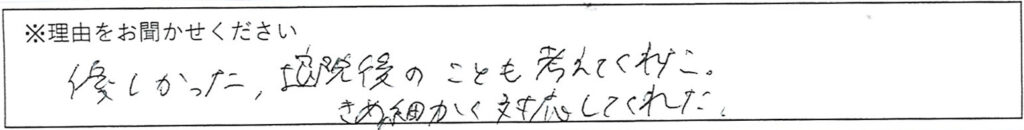 ※理由をお聞かせください
優しかった，退院後のことも考えてくれた。
きめ細かく対応してくれた。